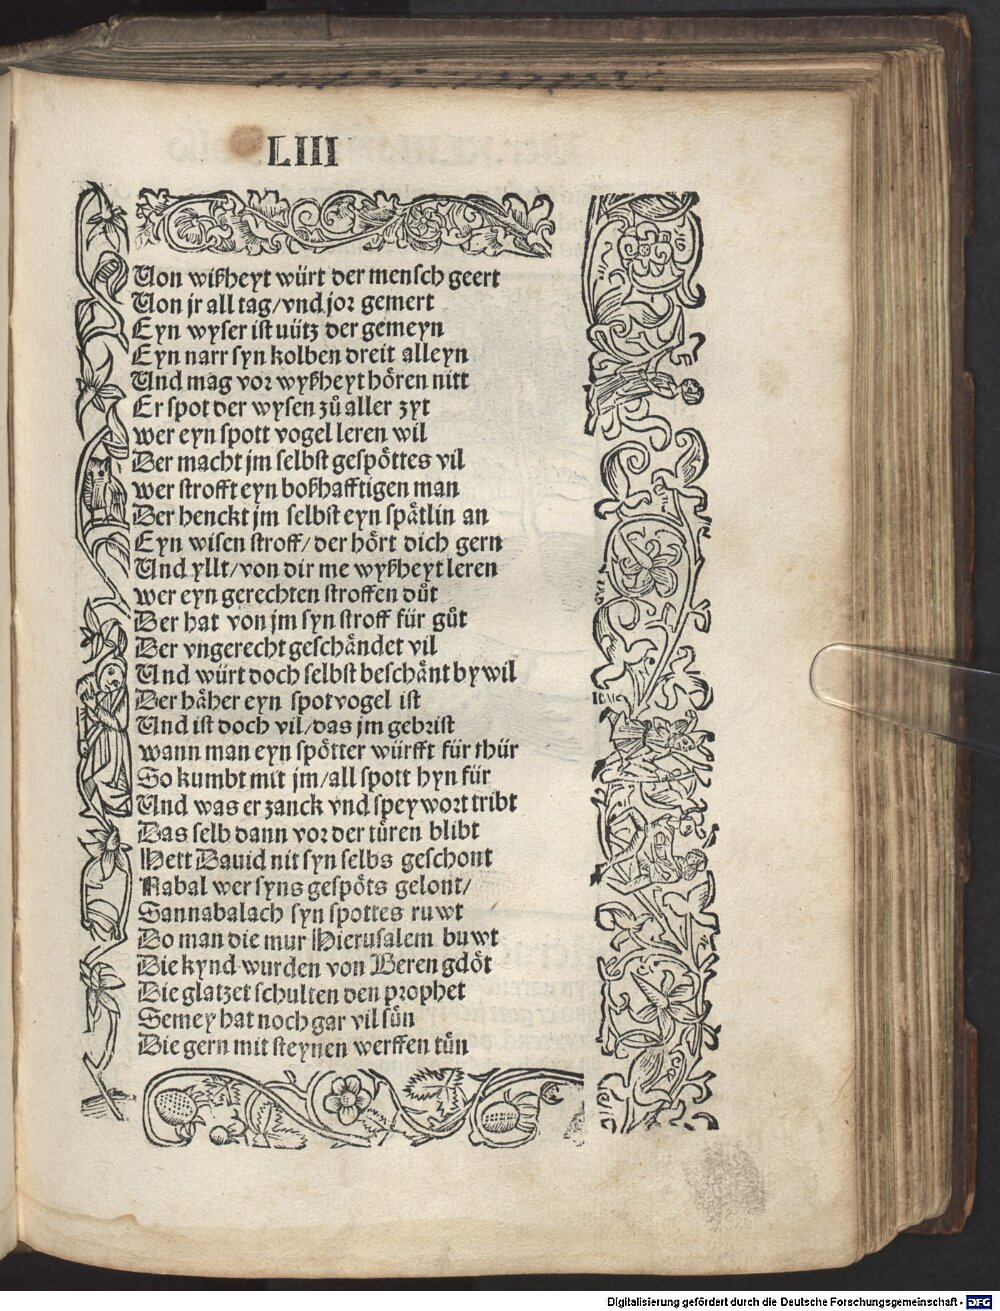 LIII
Von wißheyt würt der mensch geert
Von jr all tag/vnd jor gemert
Eyn wyser ist uütz der gemeyn
Eyn narr syn kolben dreit alleyn
Vnd mag vor wyßheyt hören nitt
Er spot der wysen zů aller zyt
wer eyn spott vogel leren wil
Der macht jm selbst gespöttes vil
wer strofft eyn boßhafftigen man
Der henckt jm selbst eyn spätlin an
Eyn wisen stroff/der hört dich gern
Vnd yllt/von dir me wyßheyt leren
wer eyn gerechten stroffen důt
Der hat von jm syn stroff für gůt
Der vngerecht geschändet vil
Vnd würt doch selbst beschänt by wil
Der häher eyn spotvogel ist
Vnd ist doch vil/das jm gebrist
wann man eyn spötter würfft für thür
So kumbt mit jm/all spott hyn für
Vnd was er zanck vnd spey wort tribt
Das selb dann vor der türen blibt
Hett Dauid nit syn selbs geschont
Nabal wer syns gespöts gelont/
Sannabalach syn spottes ruwt
Do man die mur Hierusalem buwt
Die kynd wurden von Beren gdöt
Die glatzet schulten den prophet
Semey hat noch gar vil sün
Die gern mit steynen werffen tün
Digitalisierung gefördert durch die Deutsche Forschungsgemeinschaft - DFG